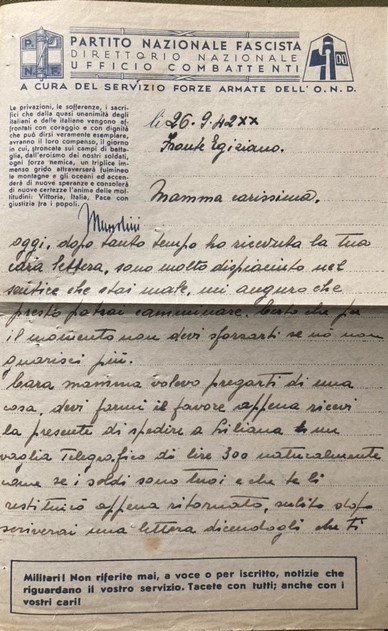 P. N. F.
PARTITO NAZIONALE FASCISTA
DIRETTORIO NAZIONALE
UFFICIO COMBATTENTI
A CURA DEL SERVIZIO FORZE ARMATE DELL'O.N.D.
Le privazioni, le sofferenze, i sacri-
fici che dalla quasi unanimità degli
italiani e delle italiane vengono af-
frontati con coraggio e con dignità
che può dirsi veramente esemplare,
avranno il loro compenso, il giorno
in cui, stroncata sui campi di batta-
glia, dall'eroismo dei nostri soldati,
ogni forza nemica, un triplice im-
menso grido attraverserà fulmineo
le montagne e gli oceani ed accen-
derà di nuove speranze e consolerà
di nuove certezze l'anima delle mol-
titudini: Vittoria, Italia, Pace con
giustizia fra i popoli.
Mussolini
li 26.9.42 XX
Fronte Egiziano.
Mamma carissima.
oggi, dopo tanto tempo ho ricevuta la tua
cara lettera, sono molto dispiaciuto nel
sentire che stai male, mi auguro che
presto potrai camminare. Certo che per
il momento non devi sforzarti se nò non
guarisci più.
Cara mamma volevo pregarti di una
cosa, devi farmi il favore appena ricevi
la presente di spedire a Liliana un
vaglia Telegrafico di lire 300 naturalmente
come se i soldi sono tuoi e che te li
restituirò appena ritornato, subito dopo
scriverai una lettera dicendogli che ti
Militari! Non riferite mai, a voce o per iscritto, notizie che
riguardano il vostro servizio. Tacete con tutti; anche con i
vostri cari!